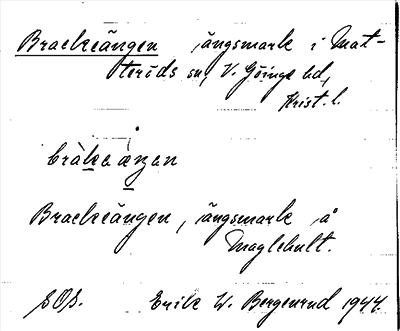 Brackeängen, ängsmark i Mat-
teröds sn, V. Göinge hd,
Krist. l.
bràkeàŋən
Brackeängen, ängsmark å
Maglehult.
SOS. Erik W. Bergenrud 1944